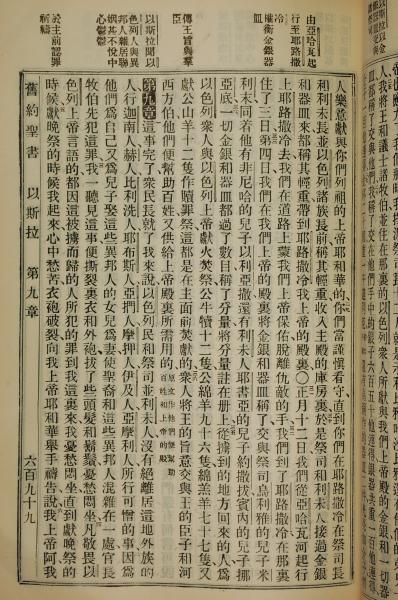 由亞哈瓦起
行至耶路撒
冷
權衡金銀器
皿
傳王旨與羣
臣
以斯拉聞以
色列人與異
邦人雜居聯
姻甚不悅中
心鬱鬱
於主前認罪
祈禱
人樂意獻與你們列祖的上帝耶和華的你們當謹慎看守直到你們在耶路撒冷在祭司長
和利未長並以色列諸族長前稱其輕重收入主殿的庫房裏於是祭司和利未人接過金銀
和器皿來都稱其輕重帶到耶路撒冷我上帝的殿裏○正月十二日我們從亞哈瓦河起行
上耶路撒冷去我們在道路上蒙我們上帝保佑脫離仇敵的手我們到了耶路撒冷在那裏
住了三日第四日我們在我們上帝的殿裏將金銀和器皿稱了交與祭司烏利雅的兒子米
利末同着他有非尼哈的兒子以利亞撒還有利未人耶書亞的兒子約撒拔賓內的兒子挪
亞底一切金銀和器皿都過了數目稱了分量將分量註在册上從擄到的地方回來的人為
以色列衆人與以色列上帝獻火焚祭公牛犢十二隻公綿羊九十六隻綿羔羊七十七隻又
獻公山羊十二隻作贖罪祭這都是在主面前焚獻的衆人將王的旨意交與王的臣子和河
西方伯他們便幫助百姓又供給上帝殿裏所需用的
原文作他們便幫助
百姓和上帝的殿
第九章這事完了衆民長就了我來說以色列民和祭司並利未人沒有絕離居這地外族的
人行迦南人赫人比利洗人耶布斯人亞捫人摩押人伊及人亞摩利人所行可憎的事因
他們為自己又為兒子娶這些異邦人的女兒為妻使聖裔和這些異邦人混雜在一處官長
牧伯先犯這罪我一聽見這事便撕裂裏衣和外袍拔了些頭髮和鬍鬚憂愁悶坐凡敬畏以
色列上帝言語的都因這被擄而歸的人所犯的罪到我這裏來我憂愁悶坐直到獻晚祭的
時候獻晚祭的時候我起來心中愁苦衣袍破裂向我上帝耶和華舉手禱告說我上帝阿我
舊約聖書　以斯拉　第九章　六百九十九